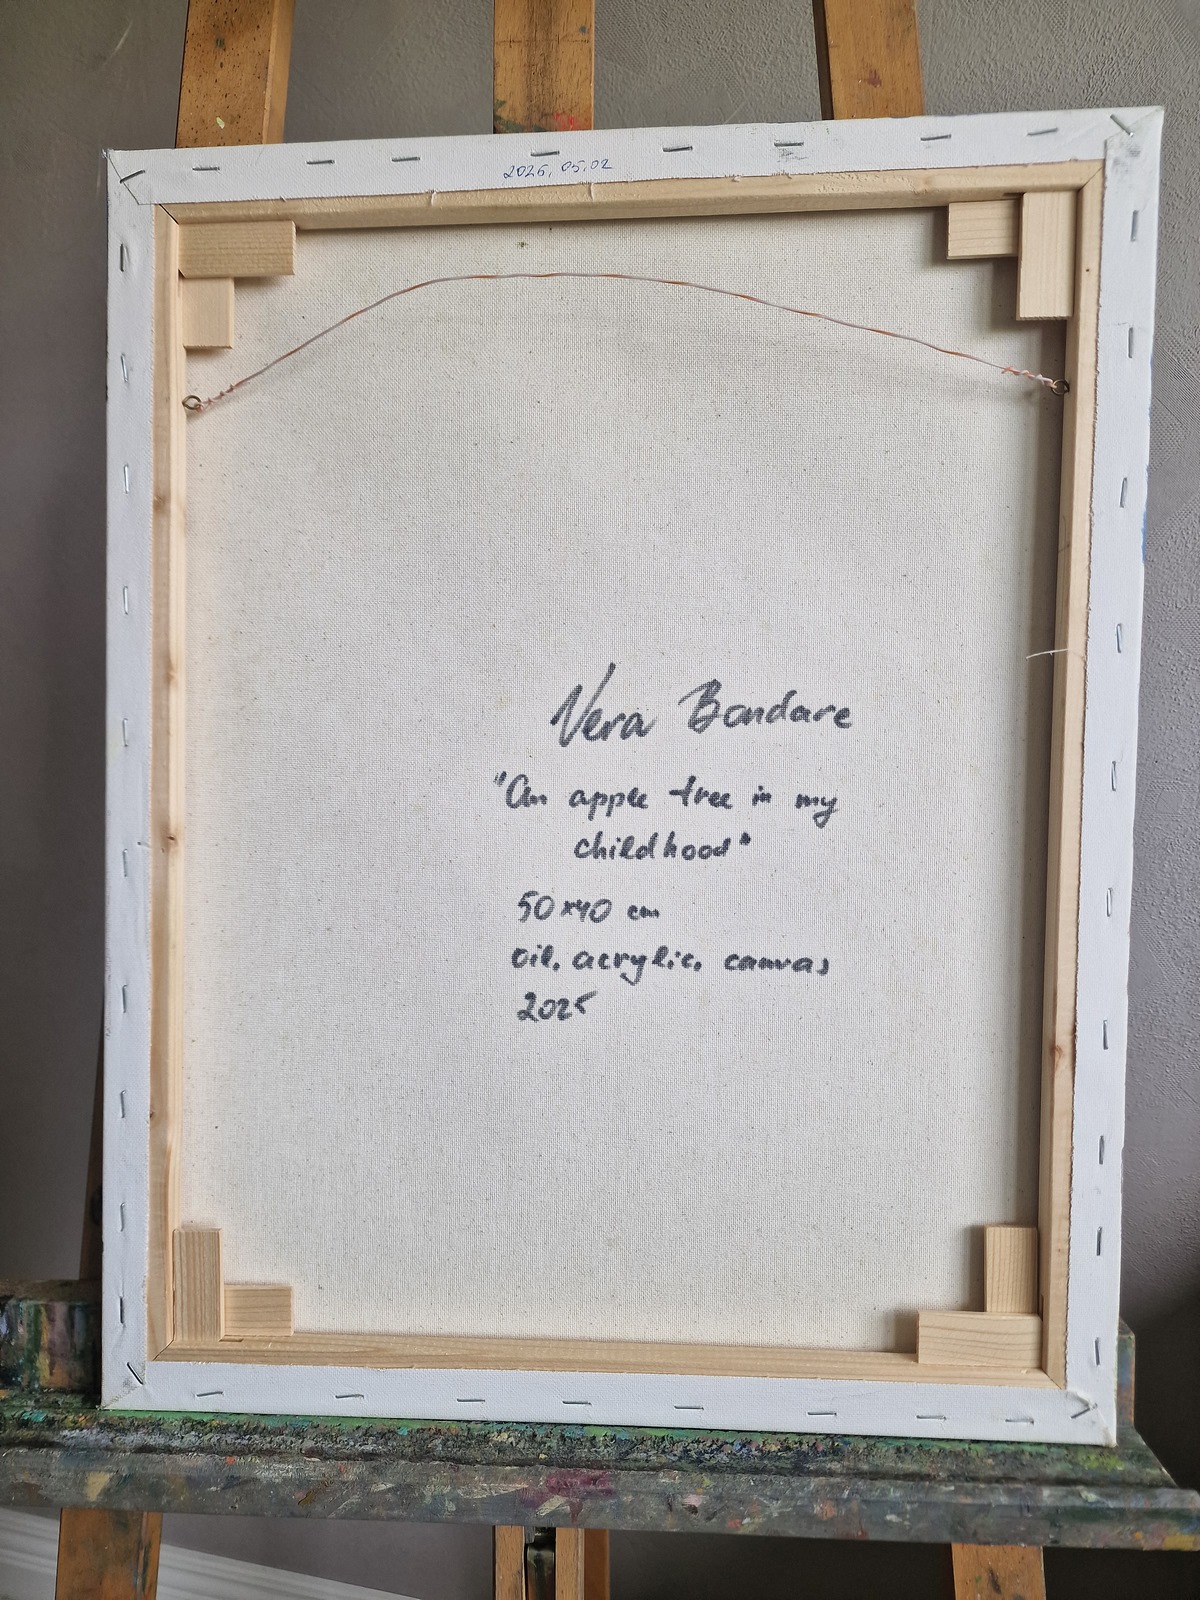 2025, 05,02
Vera Bondare
"An apple tree in my
childhood"
50x40 cm
oil, acrylic, canvas
2025